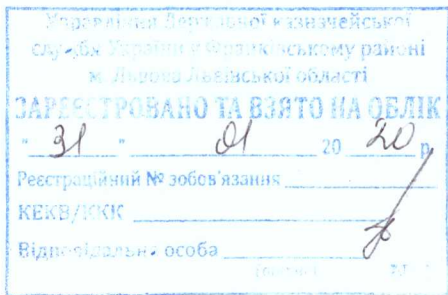 Управління Державної казначейської
служби України у Франківському районі
м. Львова Львівської області
ЗАРЕЄСТРОВАНО ТА ВЗЯТО НА ОБЛІК
" 31 " 01 20 20 р.
Реєстраційний № зобов'язання
КЕКВ/ККК
Відповідальна особа